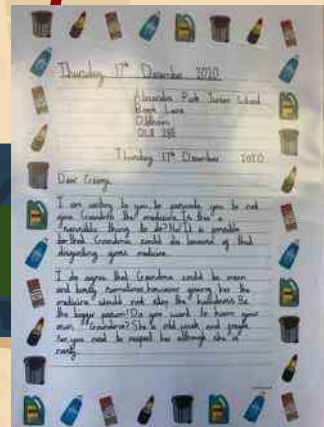 Thursday 17th December 2020
Alexandra Park Junior School
Brook Lane
Oldham
OL8 2BE
Thursday 17th December 2020
Dear George,
I am writing to you to persuade you to not
give Grandma the medicine. Is this a
sensible thing to do? No! It is possible
that Grandma could die because of that
disgusting gross medicine.
I do agree that Grandma could be mean
and bossy sometimes, however giving her the
medicine would not stop the
the bigger person! Do you want to harm your
own Grandma? She is old, weak and fragile
so, you need to respect her although she is
nasty.